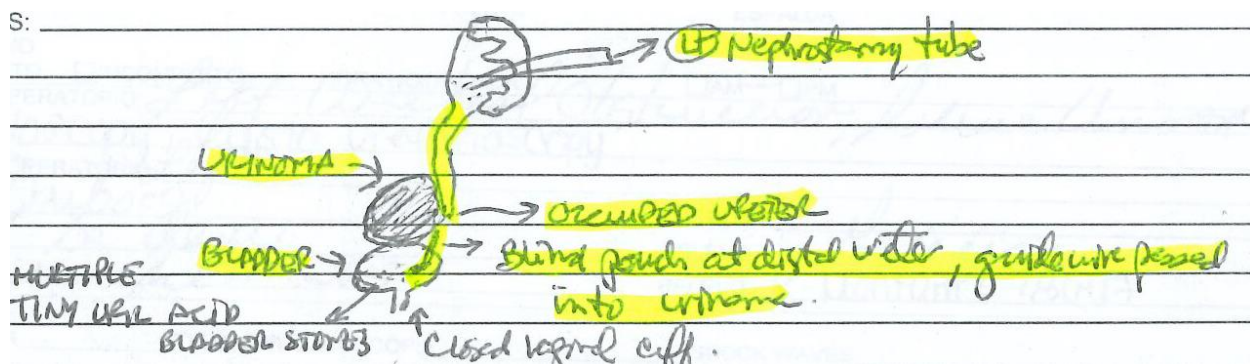 S:
(Lt) Nephrostomy tube
URINOMA
OCCLUDED URETER
BLADDER
Blind pouch at distal ureter, guidewire passed
into urinoma.
MULTIPLE
TINY URIC ACID
BLADDER STONES
Closed vaginal cuff